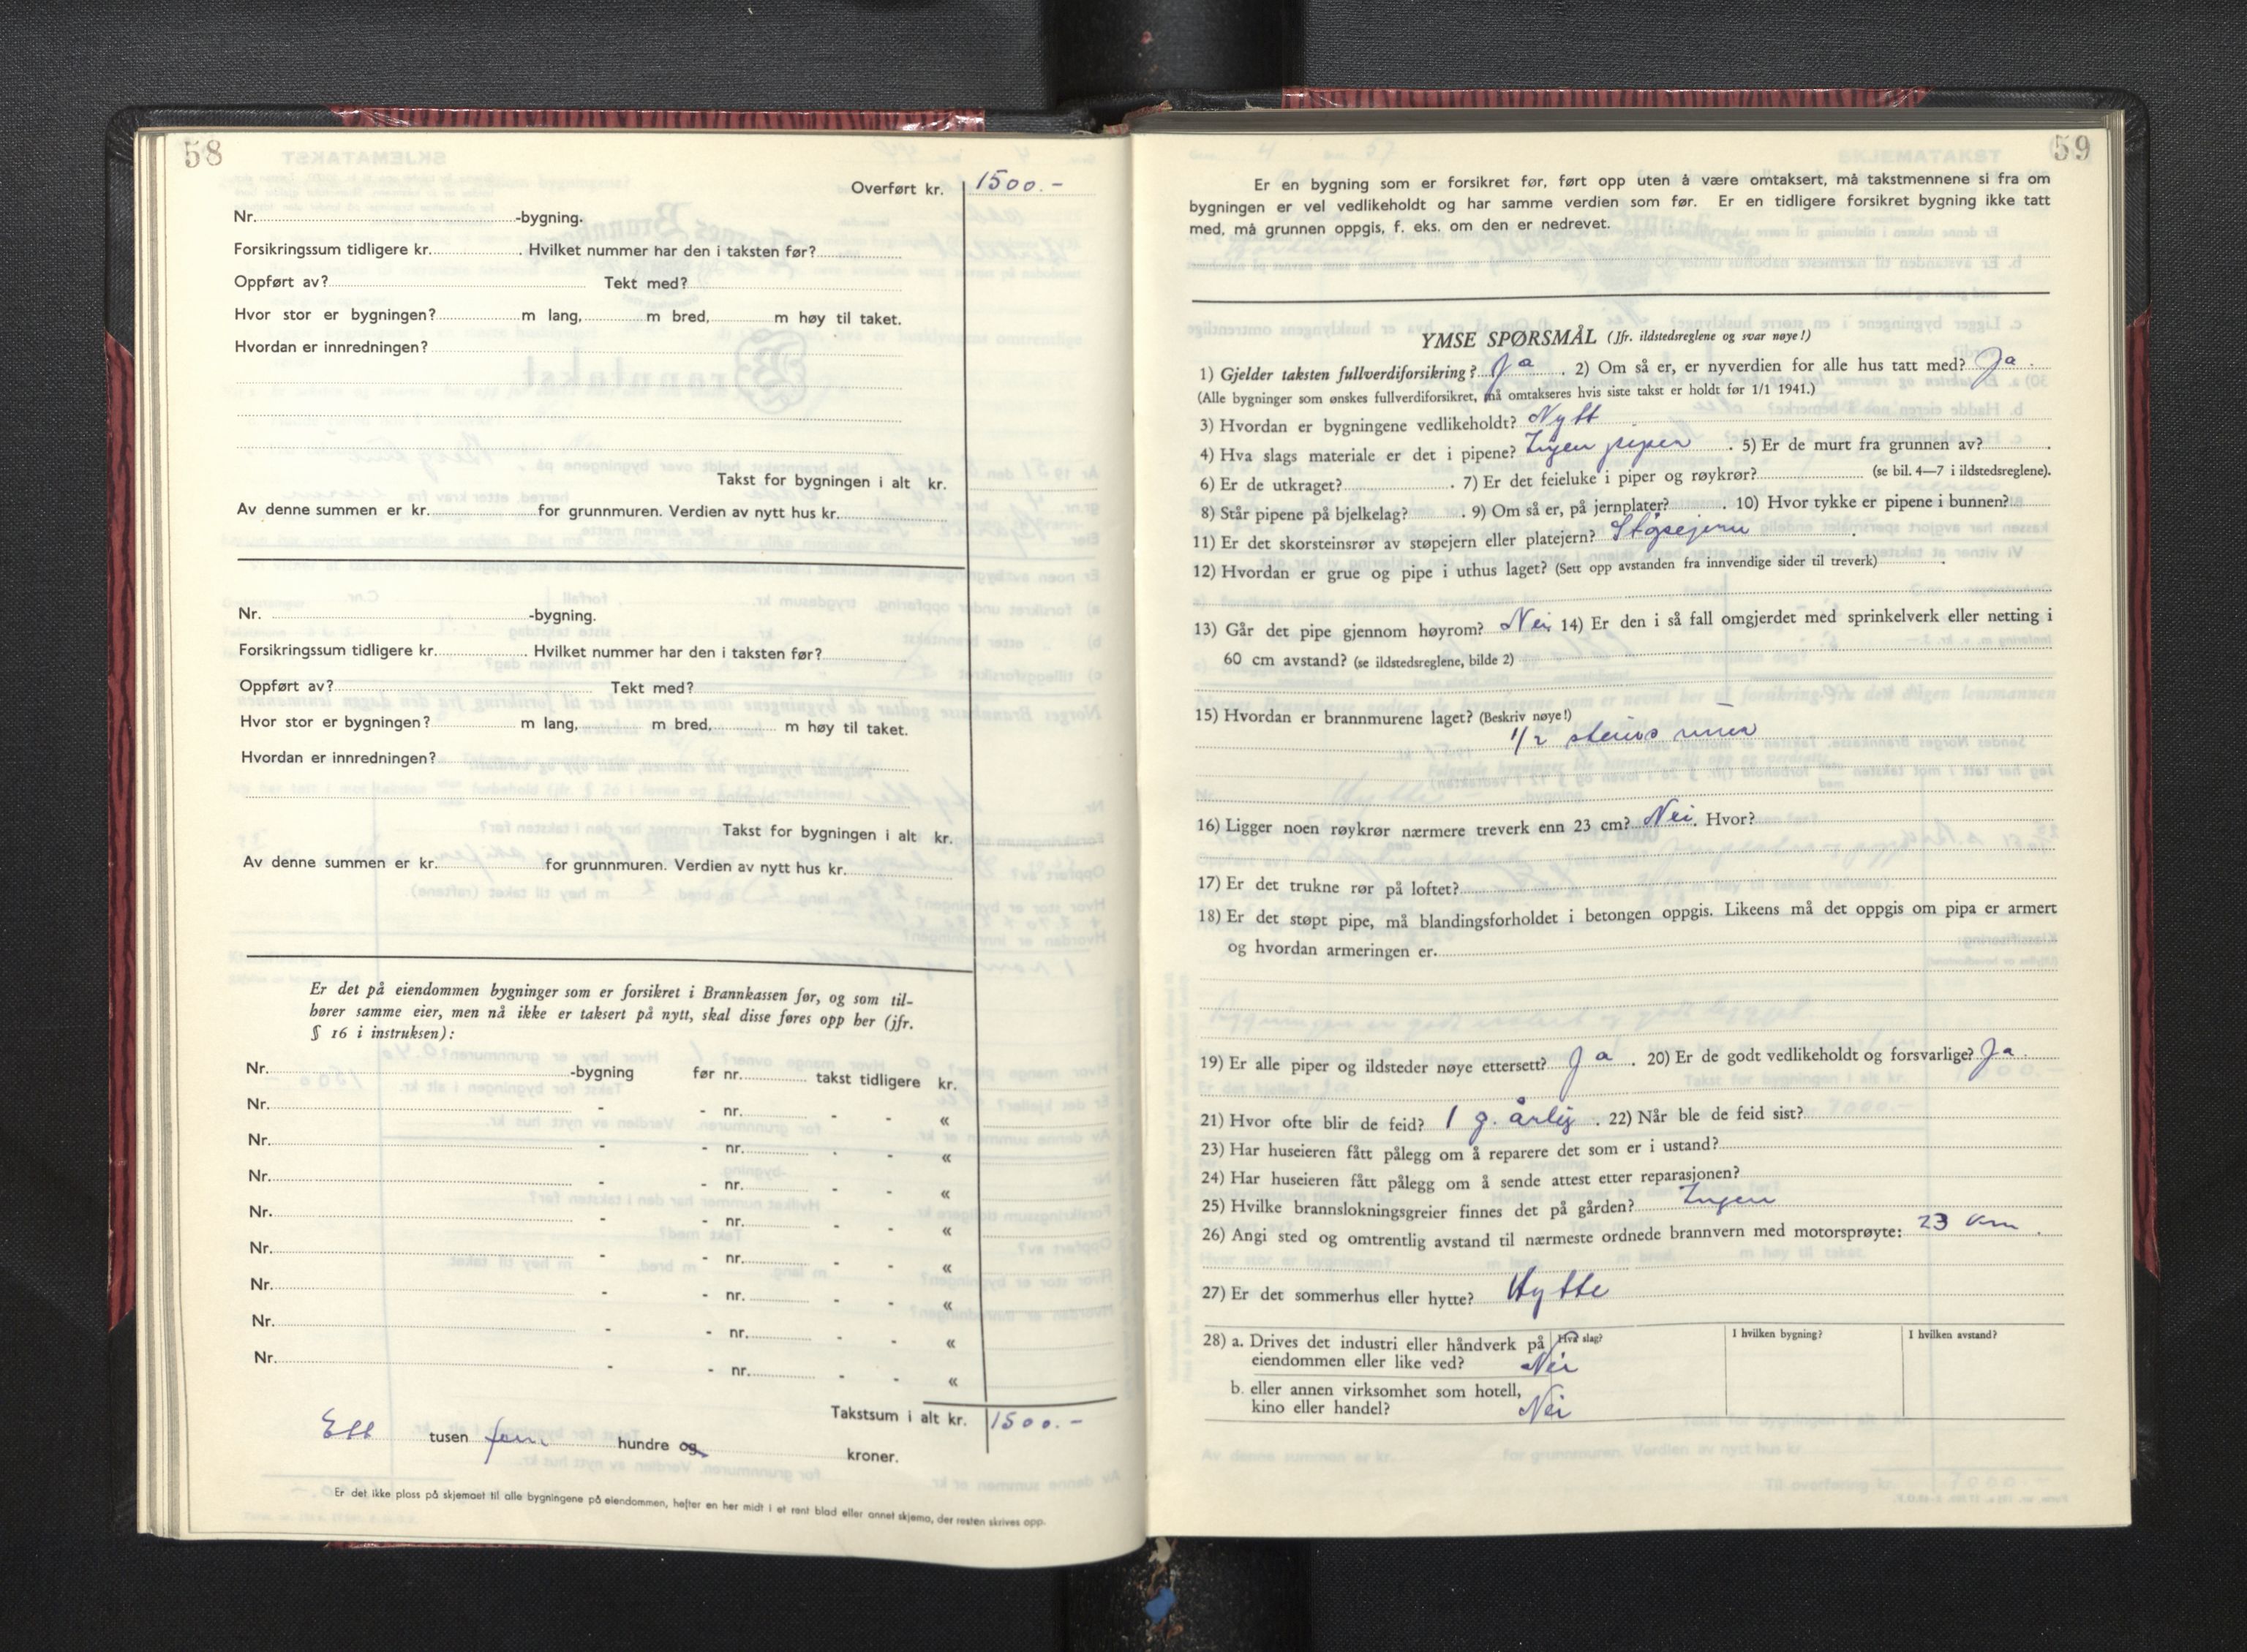 58
Overført kr. 1500.-
Nr. -bygning.
Forsikringssum tidligere kr. . Hvilket nummer har den i taksten før?
Oppført av? Tekt med?
Hvor stor er bygningen? m lang, m bred, m høy til taket.
Hvordan er innredningen?
Takst for bygningen i alt kr.
Av denne summen er kr. for grunnmuren. Verdien av nytt hus kr.
Nr. -bygning.
Forsikringssum tidligere kr. . Hvilket nummer har den i taksten før?
Oppført av? Tekt med?
Hvor stor er bygningen? m lang, m bred, m høy til taket.
Hvordan er innredningen?
Takst for bygningen i alt kr.
Av denne summen er kr. for grunnmuren. Verdien av nytt hus kr.
Er det på eiendommen bygninger som er forsikret i Brannkassen før, og som til-
hører samme eier, men nå ikke er taksert på nytt, skal disse føres opp her (jfr.
§ 16 i instruksen):
Nr. -bygning før nr. takst tidligere kr.
Nr. - - nr. - - «
Nr. - - nr. - - «
Nr. - - nr. - - «
Nr. - - nr. - - «
Nr. - - nr. - - «
Nr. - - nr. - - «
Nr. - - nr. - - «
Nr. - - nr. - - «
Takstsum i alt kr. 1500.-
Ett tusen fem hundre og kroner.
Er det ikke plass på skjemaet til alle bygningene på eiendommen, hefter en her midt i et rent blad eller annet skjema, der resten skrives opp.
59
Er en bygning som er forsikret før, ført opp uten å være omtaksert, må takstmennene si fra om
bygningen er vel vedlikeholdt og har samme verdien som før. Er en tidligere forsikret bygning ikke tatt
med, må grunnen oppgis, f. eks. om den er nedrevet.
YMSE SPØRSMÅL (Jfr. ildstedsreglene og svar nøye!)
1) Gjelder taksten fullverdiforsikring? Ja . 2) Om så er, er nyverdien for alle hus tatt med? Ja .
(Alle bygninger som ønskes fullverdiforsikret, må omtakseres hvis siste takst er holdt før 1/1 1941.)
3) Hvordan er bygningene vedlikeholdt? Nytt
4) Hva slags materiale er det i pipene? Ingen piper . 5) Er de murt fra grunnen av? .
6) Er de utkraget? . 7) Er det feieluke i piper og røykrør? (se bil. 4—7 i ildstedsreglene).
8) Står pipene på bjelkelag? . 9) Om så er, på jernplater? . 10) Hvor tykke er pipene i bunnen?
11) Er det skorsteinsrør av støpejern eller platejern? Støpejern .
12) Hvordan er grue og pipe i uthus laget? (Sett opp avstanden fra innvendige sider til treverk) .
13) Går det pipe gjennom høyrom? Nei. 14) Er den i så fall omgjerdet med sprinkelverk eller netting i
60 cm avstand? (se ildstedsreglene, bilde 2)
15) Hvordan er brannmurene laget? (Beskriv nøye!)
1/2 steins mur
16) Ligger noen røykrør nærmere treverk enn 23 cm? Nei. Hvor?
17) Er det trukne rør på loftet?
18) Er det støpt pipe, må blandingsforholdet i betongen oppgis. Likeens må det oppgis om pipa er armert
og hvordan armeringen er.
19) Er alle piper og ildsteder nøye ettersett? Ja . 20) Er de godt vedlikeholdt og forsvarlige? Ja .
21) Hvor ofte blir de feid? 1 g. årlig . 22) Når ble de feid sist?
23) Har huseieren fått pålegg om å reparere det som er i ustand?
24) Har huseieren fått pålegg om å sende attest etter reparasjonen?
25) Hvilke brannslokningsgreier finnes det på gården? Ingen
26) Angi sted og omtrentlig avstand til nærmeste ordnede brannvern med motorsprøyte: 23 km .
27) Er det sommerhus eller hytte? Hytte
28) a. Drives det industri eller håndverk på Hva slag? I hvilken bygning? I hvilken avstand?
eiendommen eller like ved? Nei
b. eller annen virksomhet som hotell,
kino eller handel? Nei